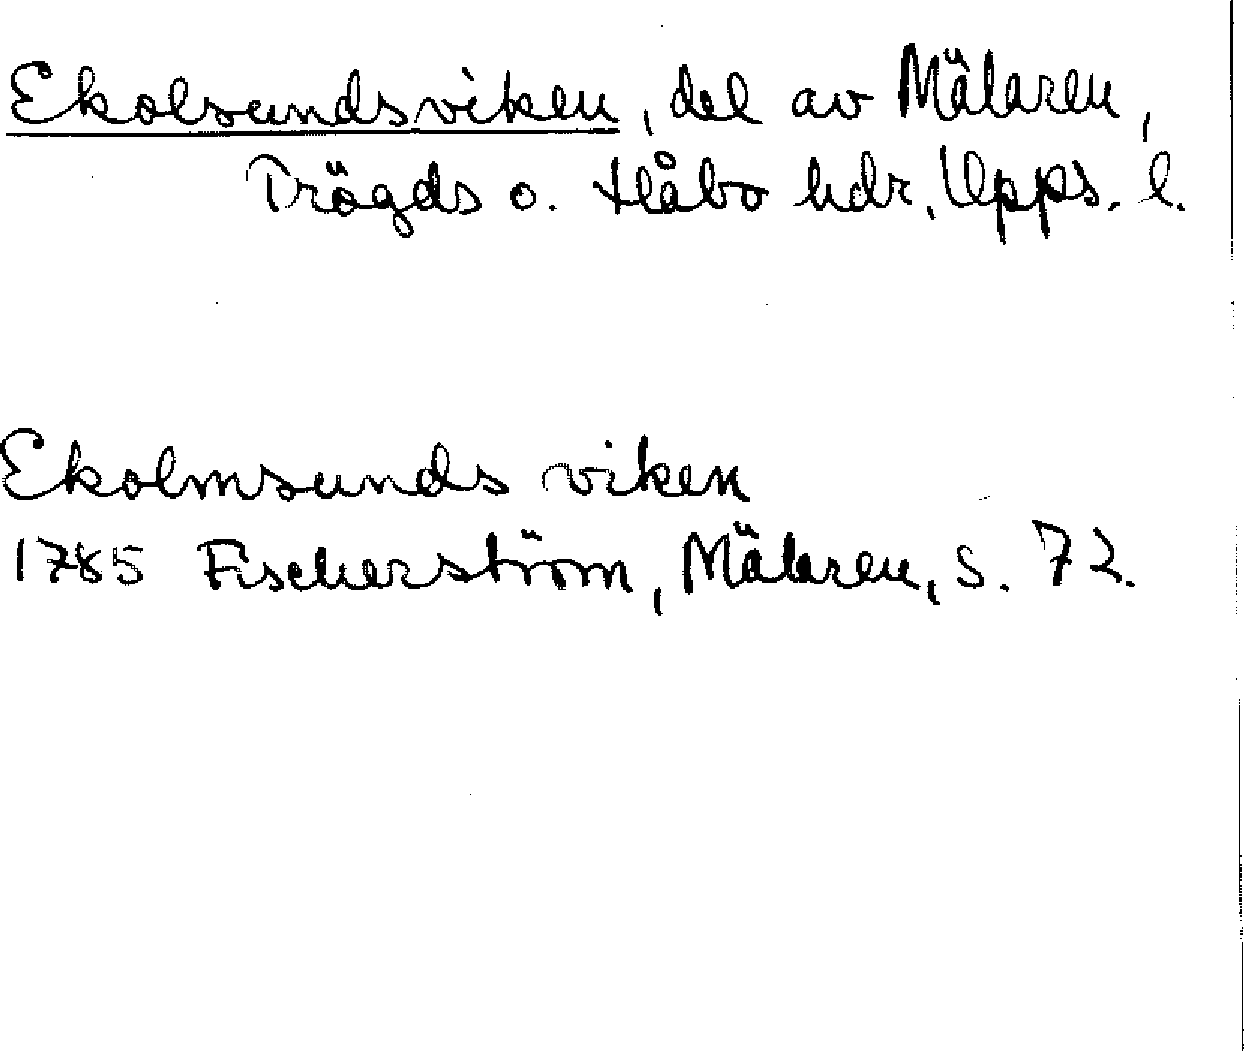 Ekolsundsviken, del av Mälaren,
Trögds o. Håbo hdr, Upps. l.
Ekolmsunds viken
1785 Fischerström, Mälaren, s. 72.